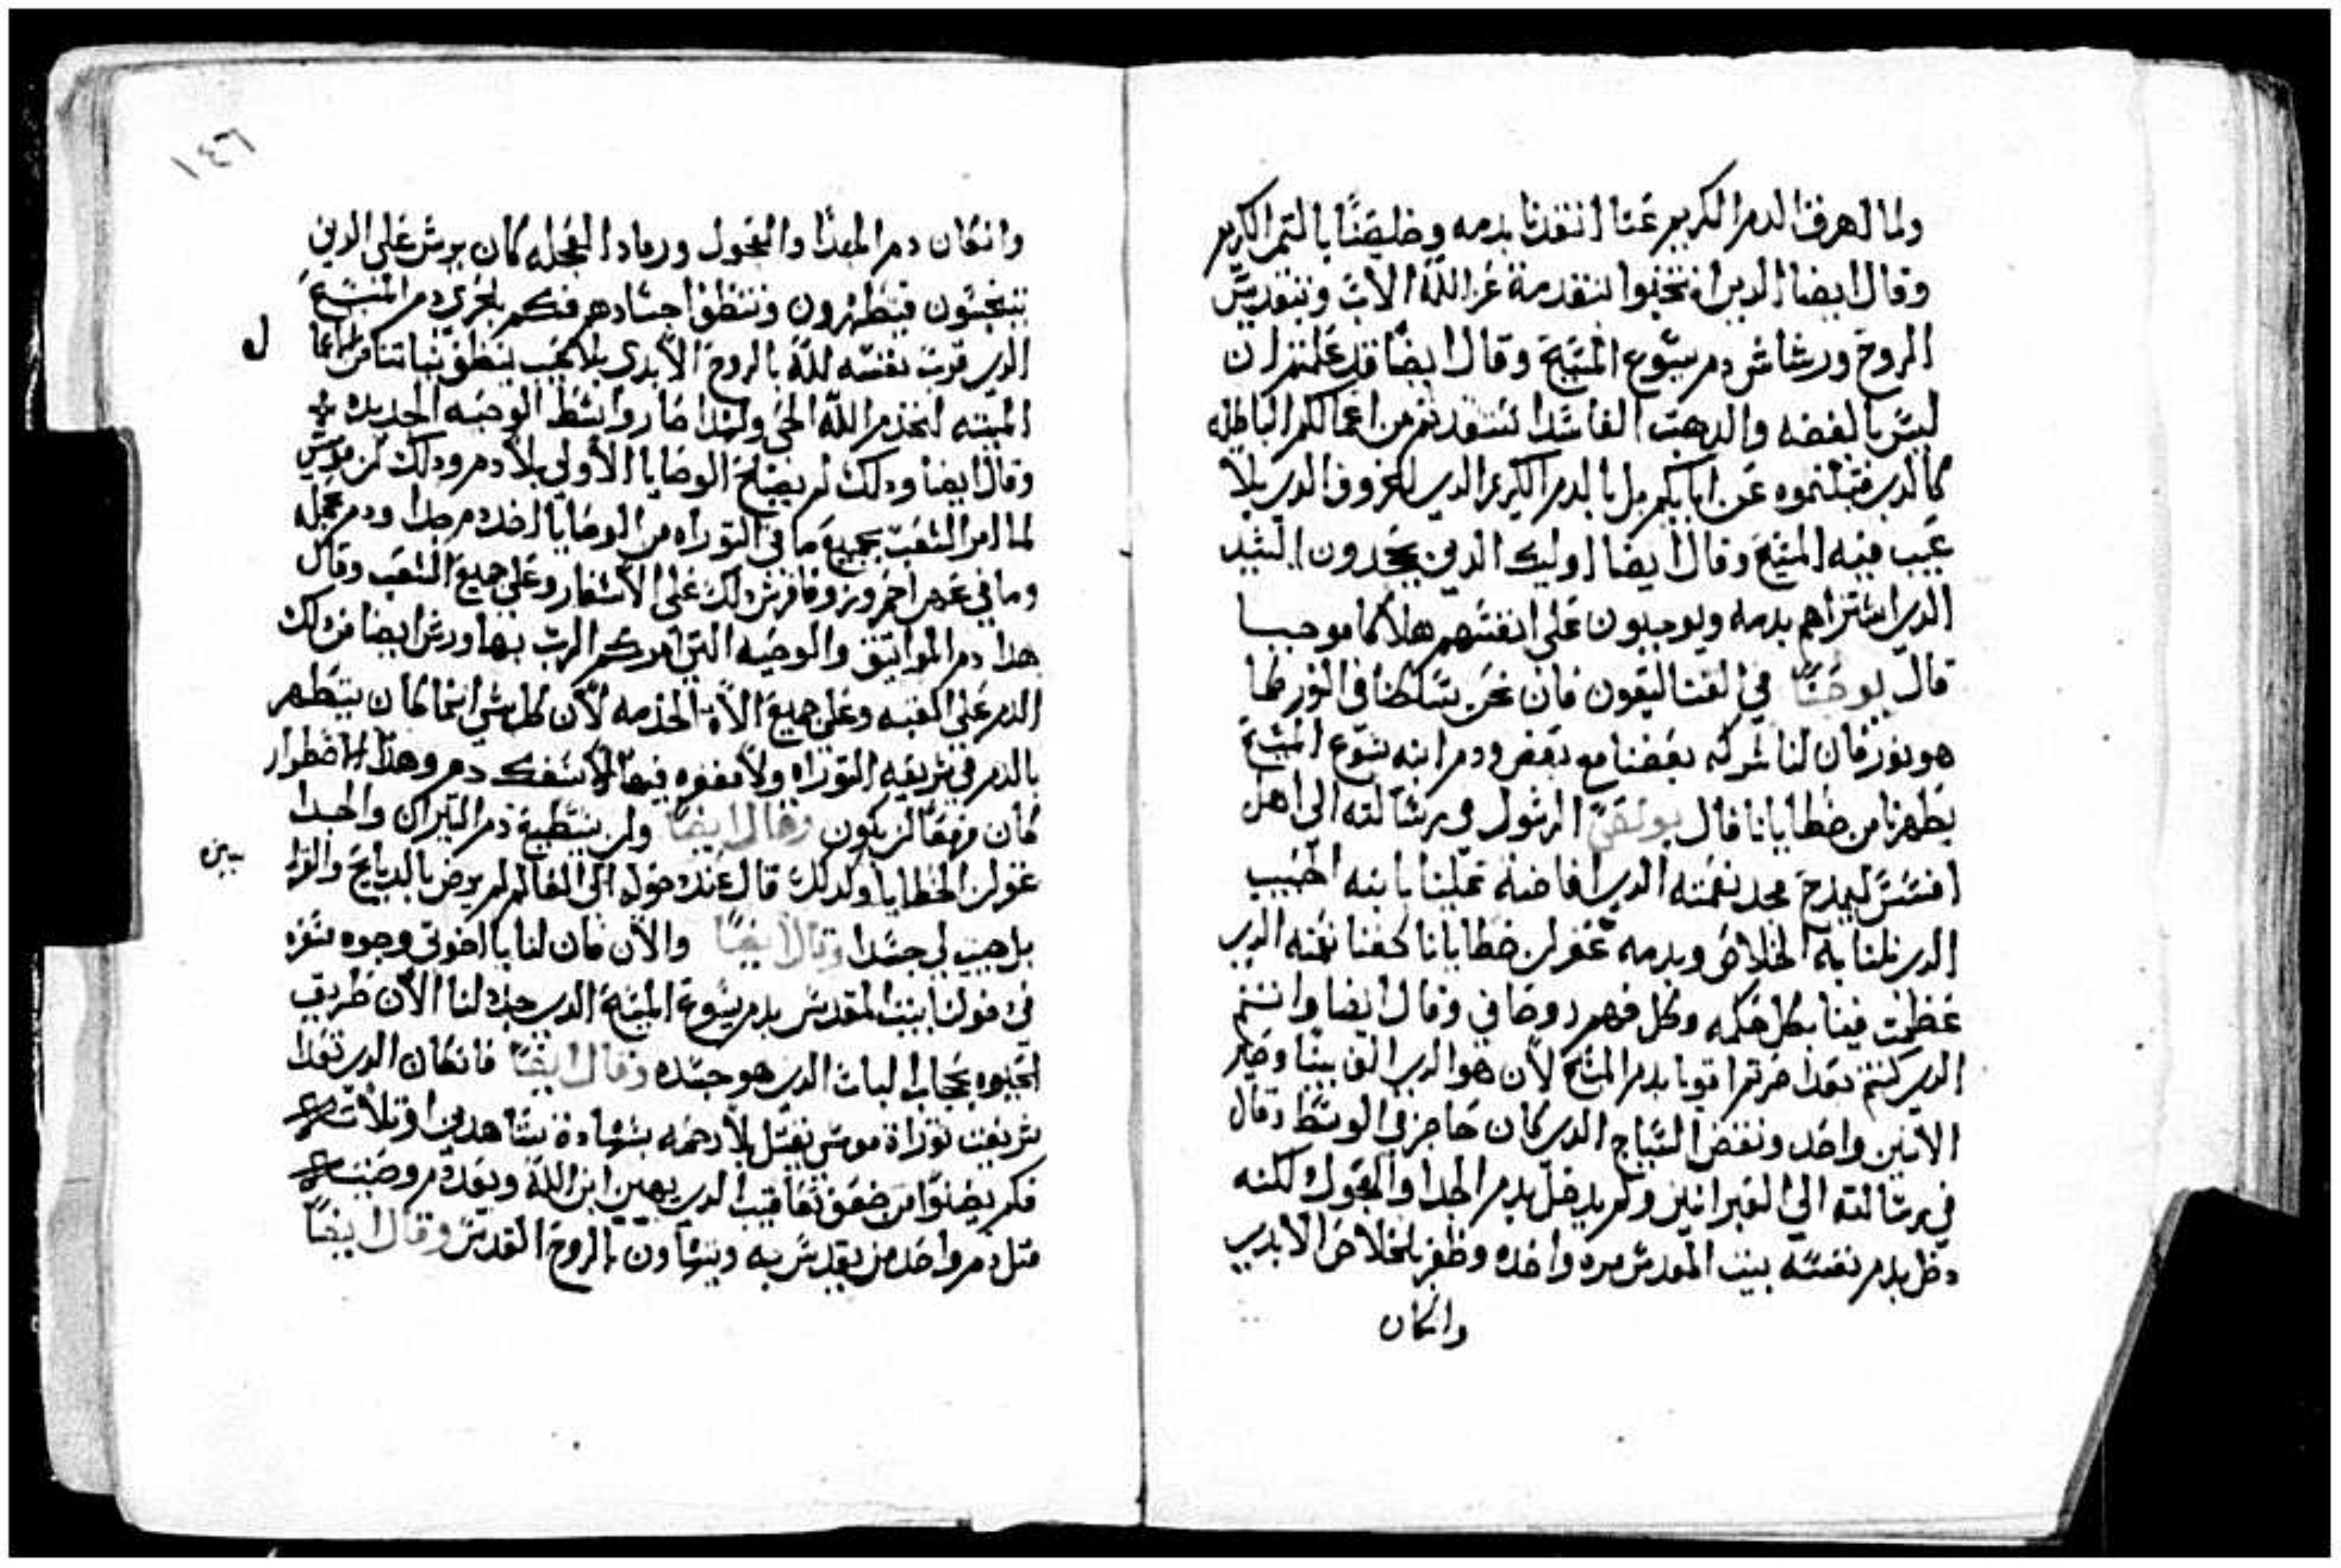 ولما اهرق الدم الكريم عنا انتقدنا بدمه وخلصنا بالتمن الكريم
وقال ايضا الدين انتخبوا لتقدمة عز الله الاب وبتقديس
الروح ورشاش دم يسوع المسيح وقال ايضا قد علمتم ان
ليس بالفضه والدهب الفاسدا استنقدتم من اعمالكم الباطله
كالدي قبلتموه عن ابايكم بل بالدم الكريم الدي للخروف الدي بلا
عيب فيه المسيح وقال ايضا اوليك الدين يجحدون السيد
الدي اشتراهم بدمه ويوجبون على انفسهم هلاكا موجبا
قال يوحنا في القتاليقون فان نحن سلكنا في النور كما
هو نور فان لنا شركه بعضنا مع بعض ودم ابنه يسوع المسيح
يطهرنا من خطايانا قال بولص الرسول في رسالته الى اهل
افسس ليمدح مجد نعمته الدي افاضه علينا بابنه الحبيب
الدي نلنا به الخلاص وبدمه غفران خطايانا كعنا نعمته الدي
عظمت فينا بكل حكمه وكل فهم روحاني وقال ايضا وانتم
الدي كنتم بعدا صرتم اقربا بدم المسيح لان هو الدي الف بيننا وصير
الاتنين واحد ونقض السياج الدي كان حاجز في الوسط وقال
في رسالته الى العبرانيين ولم يدخل بدم الجدا والعجول لكنه
دخل بدم نفسه بيت المقدس مره واحده وظفر بالخلاص الابدي
وانكان
١٤٦
وانكان دم المعدا والعجول ورماد العجله كان يرش على الدين
يتنجسون فيتطهرون وتنتظف اجسادهم فكم بالحري دم المسيح
الدي قرب نفسه لله بالروح الابدي بلا عيب ينظف نياتنا من اعمالنا
ل
الميته لنخدم الله الحي ولهدا صار واسط الوصيه الجديده
وقال ايضا ودلك لم يصلح الوصايا الاولى بلا دم ودلك لن موسى
لما امر الشعب بجميع ما في التوراه من الوصايا اخد دم جدا ودم عجله
وما في عهن احمر وزوفا فرش دلك على الاسفار وعلى جميع الشعب وقال
هدا دم المواتيق والوصيه التي امركم الرب بها ورش ايضا من دلك
الدم على القبه وعلى جميع الاة الخدمه لان كل شي انما كان يتطهر
بالدم في شريعه التوراه ولا مغفره فيها الا بسفك دم وهدا اضطرار
كان مزمعا ان يكون وقال ايضا ولن يستطيع دم التيران والجدا
غفران الخطايا ولدلك قال عند دخوله الى العالم لم يرض بالدبايح والقرا
بين
بل هيت لي جسدا وقال ايضا والان فان لنا يا اخوتي وجوه سفره
في دخولنا بيت المقدس بدم يسوع المسيح الدي جدد لنا الان طريق
الحيوه بحجاب الباب الدي هو جسده وقال ايضا فانكان الدي تعدا
شريعت توراة موسى يقتل بلا رحمه بشهادة شاهدين او تلاته
فكم يضنوا من ضعف تعاقيب الدي يهين ابن الله ويعد دم وصيته
متل دم واحد من يقدس به ويتهاون بالروح القدس وقال ايضا